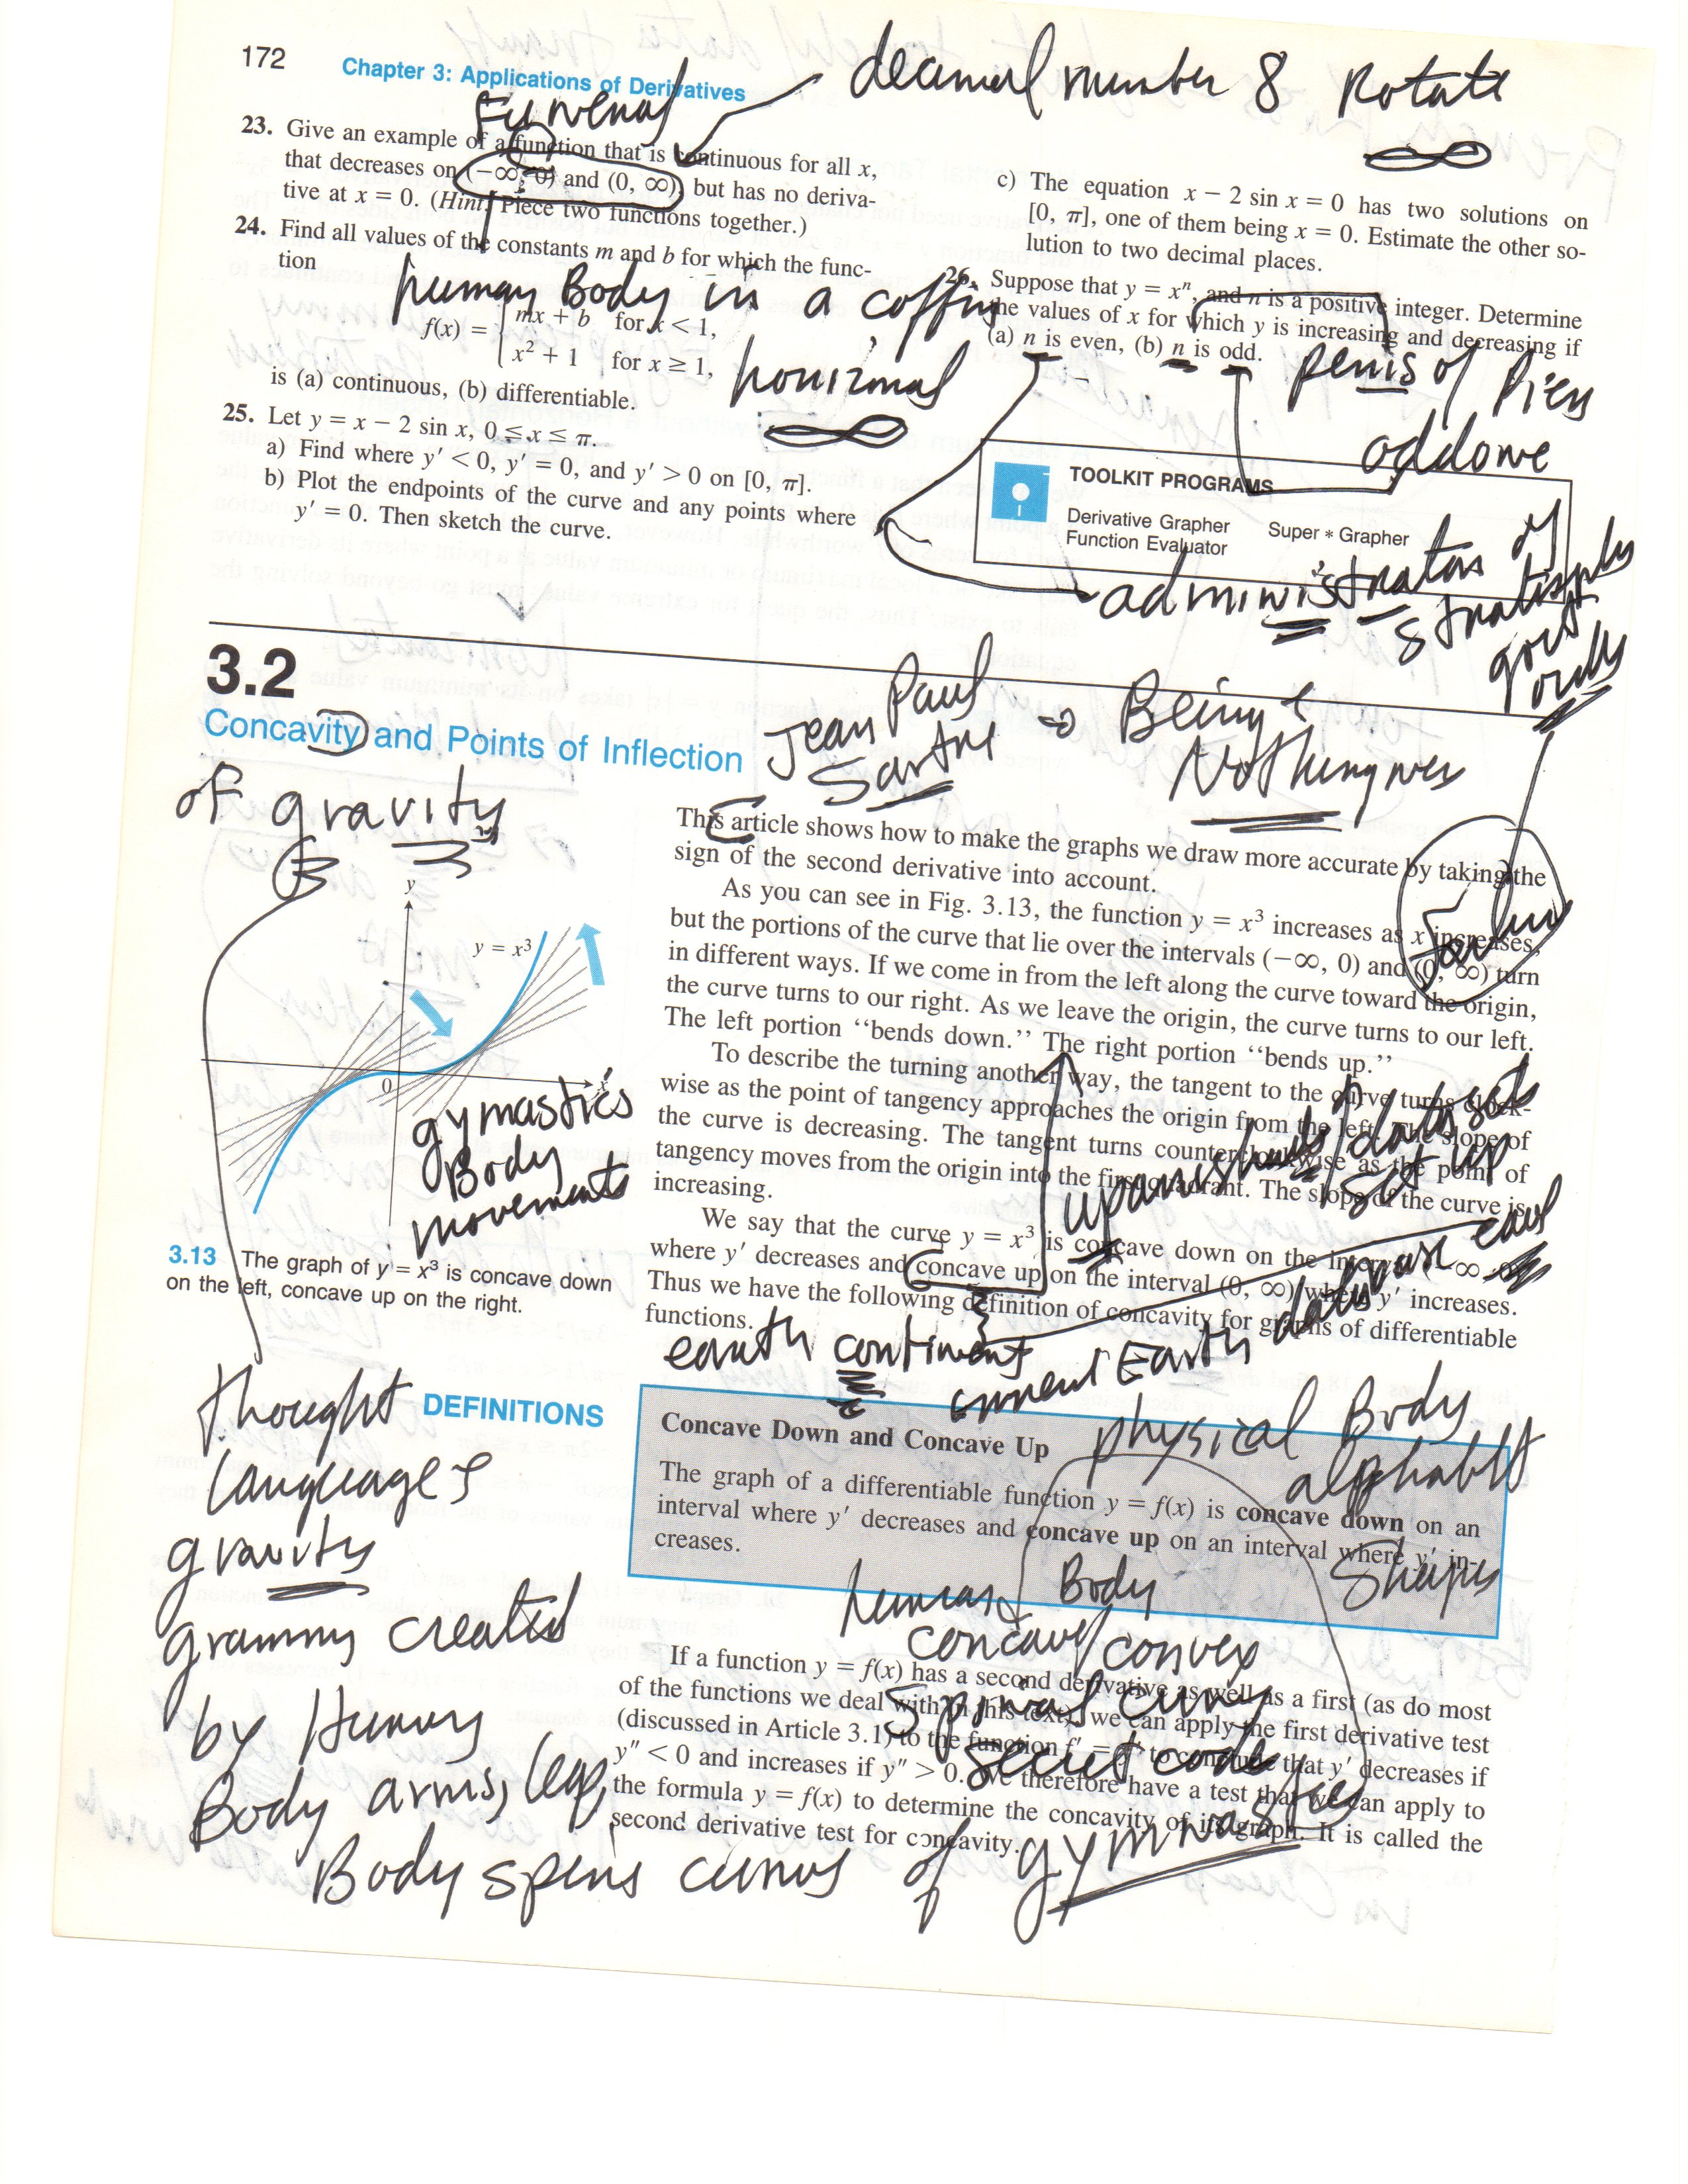 172 Chapter 3: Applications of Derivatives
decimal number 8 Rotate
∞
Funeral
23. Give an example of a function that is continuous for all x,
that decreases on (−∞, 0) and (0, ∞), but has no deriva-
tive at x = 0. (Hint: Piece two functions together.)
24. Find all values of the constants m and b for which the func-
tion
human Body in a coffin
f(x) = { mx + b for x < 1,
x² + 1 for x ≥ 1,
horizonal
∞
is (a) continuous, (b) differentiable.
25. Let y = x − 2 sin x, 0 ≤ x ≤ π.
a) Find where y′ < 0, y′ = 0, and y′ > 0 on [0, π].
b) Plot the endpoints of the curve and any points where
y′ = 0. Then sketch the curve.
c) The equation x − 2 sin x = 0 has two solutions on
[0, π], one of them being x = 0. Estimate the other so-
lution to two decimal places.
26. Suppose that y = xⁿ, and n is a positive integer. Determine
the values of x for which y is increasing and decreasing if
(a) n is even, (b) n is odd.
penis of Piers
oddone
TOOLKIT PROGRAMS
Derivative Grapher Super * Grapher
Function Evaluator
administrators of
3.2
Concavity and Points of Inflection
Jean Paul
Sartre ⇒ Being &
Nothingness
of gravity
This article shows how to make the graphs we draw more accurate by taking the
sign of the second derivative into account.
As you can see in Fig. 3.13, the function y = x³ increases as x increases,
but the portions of the curve that lie over the intervals (−∞, 0) and (0, ∞) turn
in different ways. If we come in from the left along the curve toward the origin,
the curve turns to our right. As we leave the origin, the curve turns to our left.
The left portion “bends down.” The right portion “bends up.”
To describe the turning another way, the tangent to the curve turns clock-
wise as the point of tangency approaches the origin from the left. The slope of
the curve is decreasing. The tangent turns counterclockwise as the point of
tangency moves from the origin into the first quadrant. The slope of the curve is
increasing.
We say that the curve y = x³ is concave down on the interval (−∞, 0)
where y′ decreases and concave up on the interval (0, ∞) where y′ increases.
Thus we have the following definition of concavity for graphs of differentiable
functions.
y
y = x³
0
x
gymastics
Body
movements
3.13 The graph of y = x³ is concave down
on the left, concave up on the right.
upanishads data sets
sit up
earth continent
current Earth database
thought
language &
gravity
grammy created
by Human
Body arms, legs,
Body spins curves of gymnastics
DEFINITIONS
Concave Down and Concave Up
The graph of a differentiable function y = f(x) is concave down on an
interval where y′ decreases and concave up on an interval where y′ in-
creases.
physical Body
alphabet
Shapes
human Body
concave/convex
spinal curve
secret code
If a function y = f(x) has a second derivative as well as a first (as do most
of the functions we deal with in this text), we can apply the first derivative test
(discussed in Article 3.1) to the function f′ = y′ to conclude that y′ decreases if
y″ < 0 and increases if y″ > 0. We therefore have a test that we can apply to
the formula y = f(x) to determine the concavity of its graph. It is called the
second derivative test for concavity.